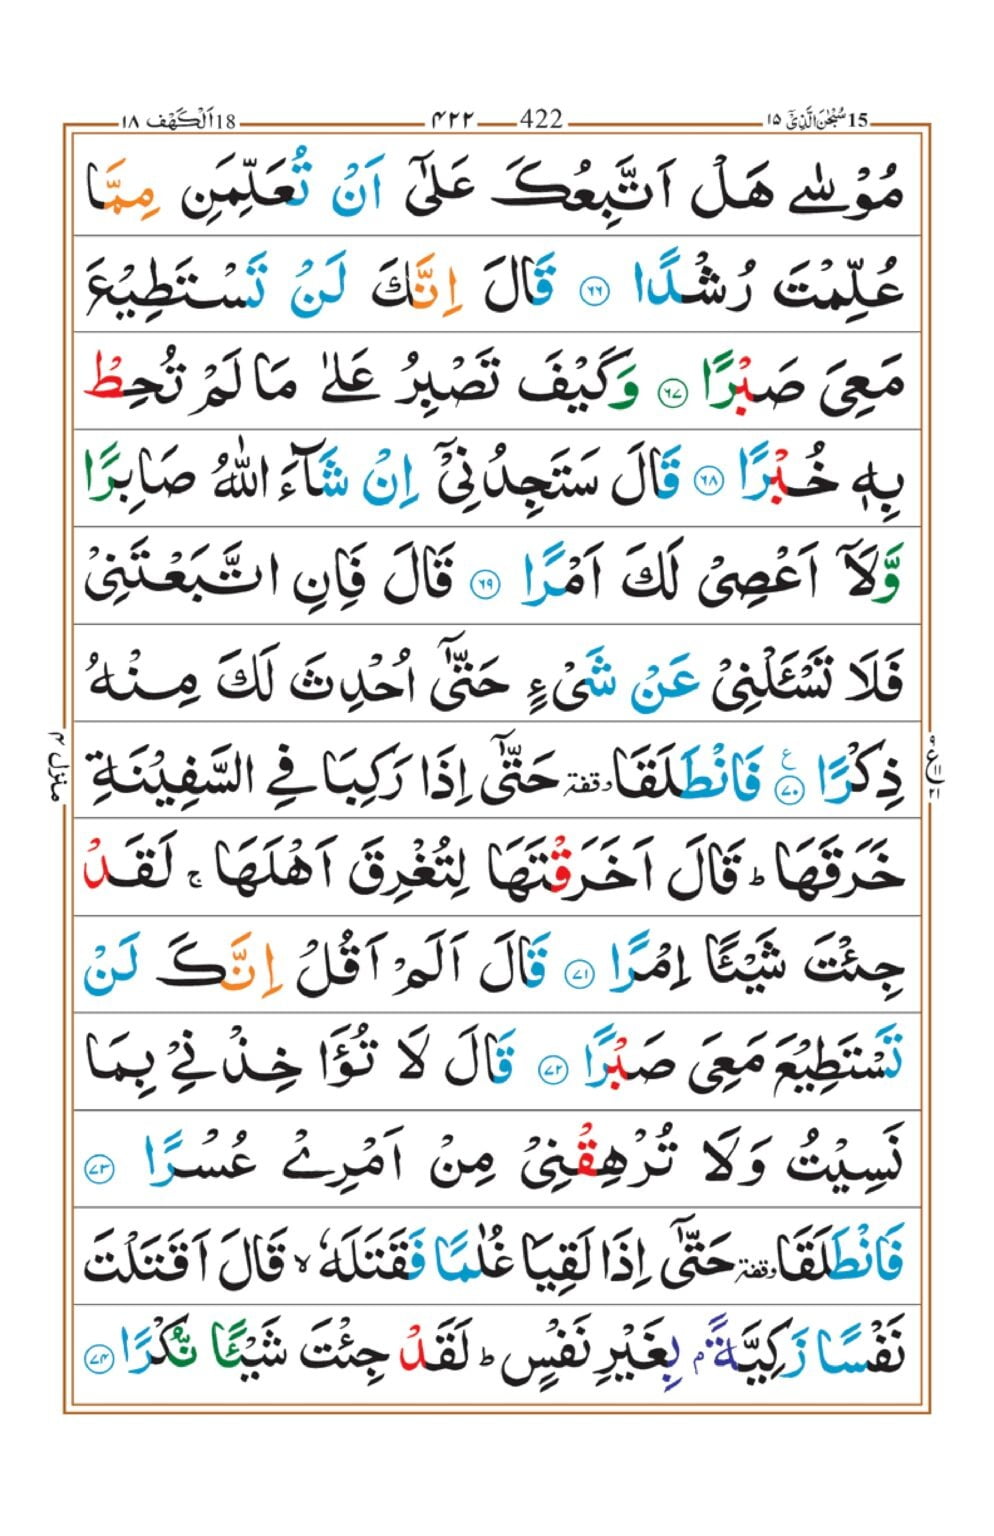 15 سُبْحٰنَ الَّذِیْۤ ١٥ 422 ۴۲۲ 18 اَلْكَهْف ١٨
مُوْسٰى هَلْ اَتَّبِعُكَ عَلٰۤى اَنْ تُعَلِّمَنِ مِمَّا
عُلِّمْتَ رُشْدًا ۶۶ قَالَ اِنَّكَ لَنْ تَسْتَطِیْعَ
مَعِیَ صَبْرًا ۶۷ وَكَیْفَ تَصْبِرُ عَلٰى مَا لَمْ تُحِطْ
بِهٖ خُبْرًا ۶۸ قَالَ سَتَجِدُنِیْۤ اِنْ شَآءَ اللّٰهُ صَابِرًا
وَّلَاۤ اَعْصِیْ لَكَ اَمْرًا ۶۹ قَالَ فَاِنِ اتَّبَعْتَنِیْ
فَلَا تَسْـَٔلْنِیْ عَنْ شَیْءٍ حَتّٰۤى اُحْدِثَ لَكَ مِنْهُ
ذِكْرًا ۷۰ ع فَانْطَلَقَا وقفة حَتّٰۤى اِذَا رَكِبَا فِی السَّفِیْنَةِ
خَرَقَهَا ط قَالَ اَخَرَقْتَهَا لِتُغْرِقَ اَهْلَهَا ج لَقَدْ
جِئْتَ شَیْـًٔا اِمْرًا ۷۱ قَالَ اَلَمْ اَقُلْ اِنَّكَ لَنْ
تَسْتَطِیْعَ مَعِیَ صَبْرًا ۷۲ قَالَ لَا تُؤَاخِذْنِیْ بِمَا
نَسِیْتُ وَلَا تُرْهِقْنِیْ مِنْ اَمْرِیْ عُسْرًا ۷۳
فَانْطَلَقَا وقفة حَتّٰۤى اِذَا لَقِیَا غُلٰمًا فَقَتَلَهٗ لا قَالَ اَقَتَلْتَ
نَفْسًا زَكِیَّةًۢ بِغَیْرِ نَفْسٍ ط لَقَدْ جِئْتَ شَیْـًٔا نُّكْرًا ۷۴
منزل ۴